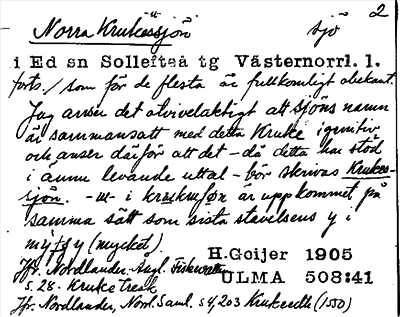 2
Norra Krukessjön sjö
i Ed sn Sollefteå tg Västernorrl. l.
forts./ som för de flesta är fullkomligt obekant.
Jag anser det otvivelaktigt att sjöns namn
är sammansatt med detta Kruke i genitiv
och anser därför att det – då detta har stöd
i ännu levande uttal – bör skrivas Krukes-
sjön. - i är uppkommet på
samma sätt som sista stavelsens y i
(mycket).
H.Geijer 1905
Jfr. Nordlander, Ångl. Fiskevatten
ULMA 508:41
s 28. Kruketresk
Jfr. Nordlander, Norrl. Saml. s 203 (1550)